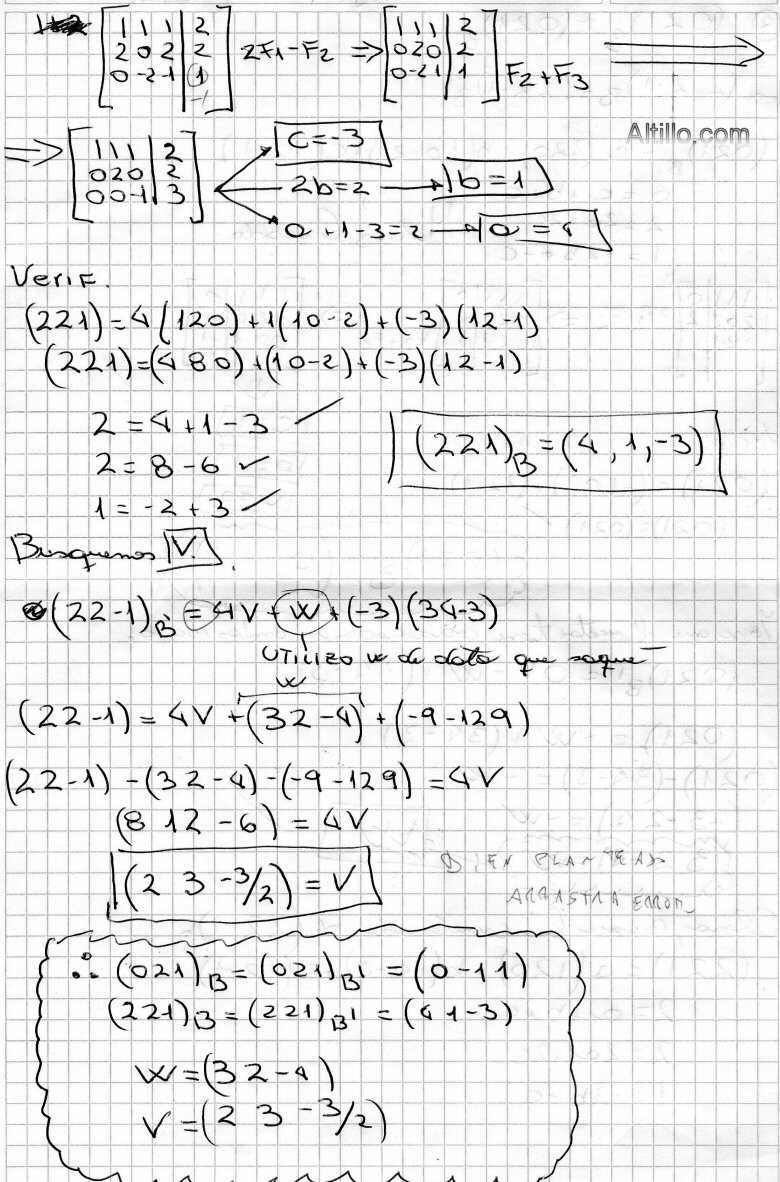 [1 1 1 | 2] [1 1 1 | 2]
[2 0 2 | 2] 2F1-F2 ⇒ [0 2 0 | 2] ⟹
[0 -2 -1 | 1] [0 -2 -1 | 1] F2+F3
-1
Altillo.com
⟹ [1 1 1 | 2] C=-3
[0 2 0 | 2] 2b=2 → b=1
[0 0 -1 | 3] a+1-3=2 → a=4
Verif.
(221)=4(120)+1(10-2)+(-3)(12-1)
(221)=(480)+(10-2)+(-3)(12-1)
2=4+1-3 ✓
2=8-6 ✓ (221)B=(4,1,-3)
1=-2+3 ✓
Busquemos V.
(22-1)B'=4V+W+(-3)(34-3)
UTILIZO w de dato que saque
W
(22-1)=4V+(32-4)+(-9-129)
(22-1)-(32-4)-(-9-129)=4V
(8 12 -6)=4V
(2 3 -3/2)=V
BIEN PLANTEADO
ARRASTRA ERROR
∴ (021)B=(021)B'=(0-11)
(221)B=(221)B'=(41-3)
W=(32-4)
V=(2 3 -3/2)